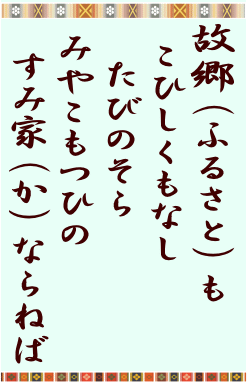 故郷（ふるさと）も
こひしくもなし
たびのそら
みやこもつひの
すみ家（か）ならねば